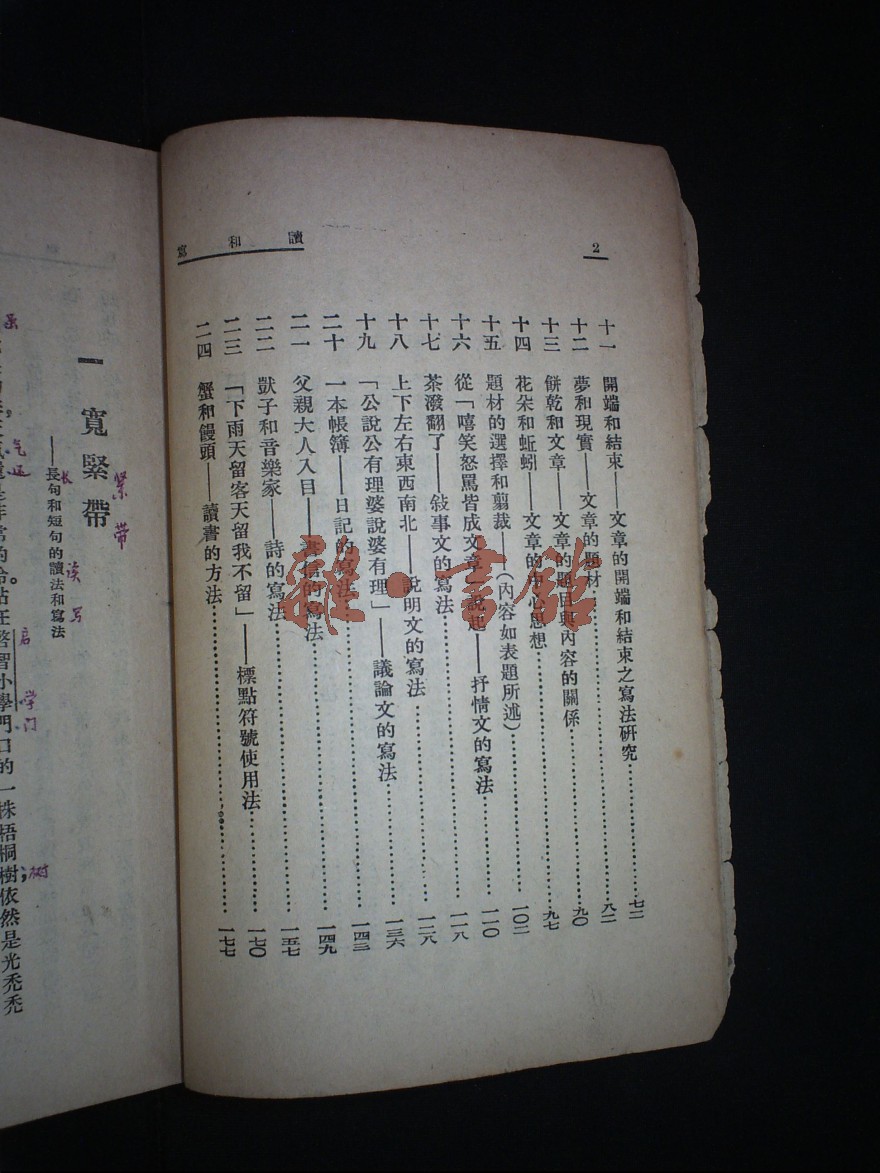 2
讀和寫
十一 開端和結束——文章的開端和結束之寫法研究……七二
十二 夢和現實——文章的題材……八二
十三 餅乾和文章——文章的題目與內容的關係……九〇
十四 花朵和蚯蚓——文章的中心思想……九七
十五 題材的選擇和剪裁——(內容如表題所述)……一〇二
十六 從「嘻笑怒罵皆成文章」說起——抒情文的寫法……一一〇
十七 茶潑翻了——敍事文的寫法……一一八
十八 上下左右東西南北——說明文的寫法……一二八
十九 「公說公有理婆說婆有理」——議論文的寫法……一三六
二十 一本帳簿——日記的寫法……一四三
二一 父親大人入目——書信的寫法……一四九
二二 獃子和音樂家——詩的寫法……一五七
二三 「下雨天留客天留我不留」——標點符號使用法……一七〇
二四 蟹和饅頭——讀書的方法……一七七
雜·書館
紧带
一 寬緊帶
——長句和短句的讀法和寫法
长 读 写
启 学门 树
站在啓智小學門口的一株梧桐樹依然是光禿禿